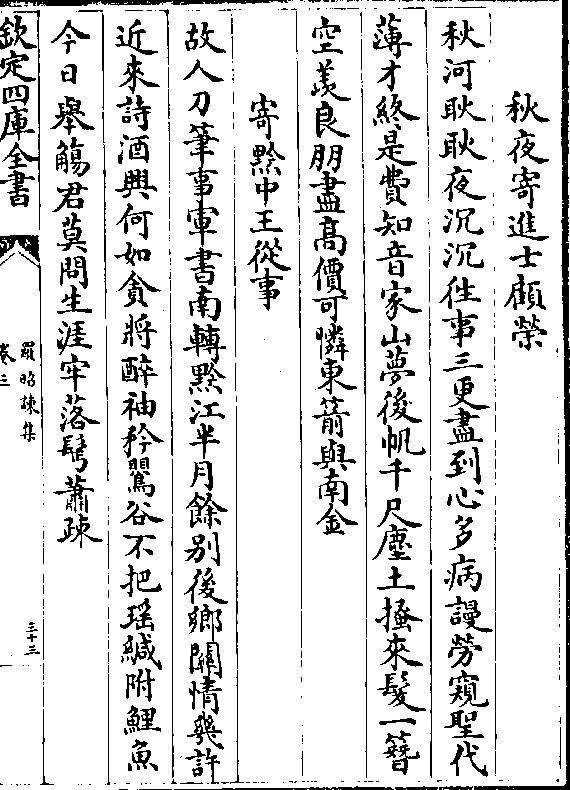 秋夜寄進士顧榮
秋河耿耿夜沉沉徃事三更盡到心多病謾勞窺聖代
薄才終是費知音家山夢後帆千尺塵土搔來髮一簪
空羡良朋盡髙價可憐東箭與南金
寄黔中王從事
故人刀筆事軍書南轉黔江半月餘别後鄉關情幾許
近來詩酒興何如貪將醉袖矜鸎谷不把瑶緘附鯉魚
今日舉觴君莫問生涯牢落鬢蕭疎
欽定四庫全書
羅昭諫集
卷三
三十三